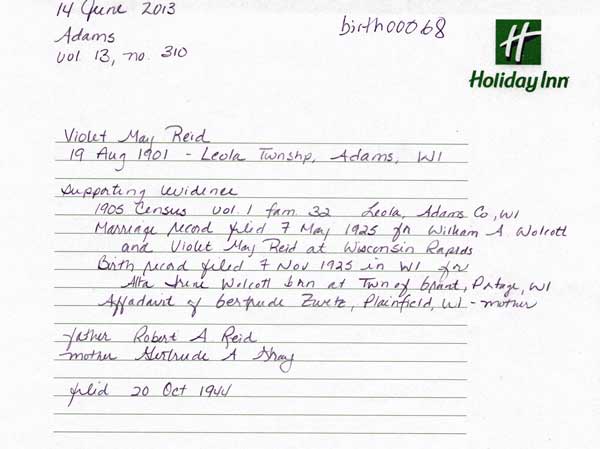 14 June 2013
birth00068
Adams
vol. 13, no. 310
Holiday Inn
Violet May Reid
19 Aug 1901 - Leola Twnshp, Adams, WI
Supporting evidence
1905 Census vol. 1 fam. 32 Leola, Adams Co, WI
Marriage record filed 7 May 1925 for William A. Wolcott
and Violet May Reid at Wisconsin Rapids
Birth record filed 7 Nov 1925 in WI for
Alta Irene Wolcott bnn at Twn of Grant, Portage, WI
Affadavit of Gertrude Zwetz, Plainfield, WI - mother
father Robert A Reid
mother Gertrude A Gray
filed 20 Oct 1944